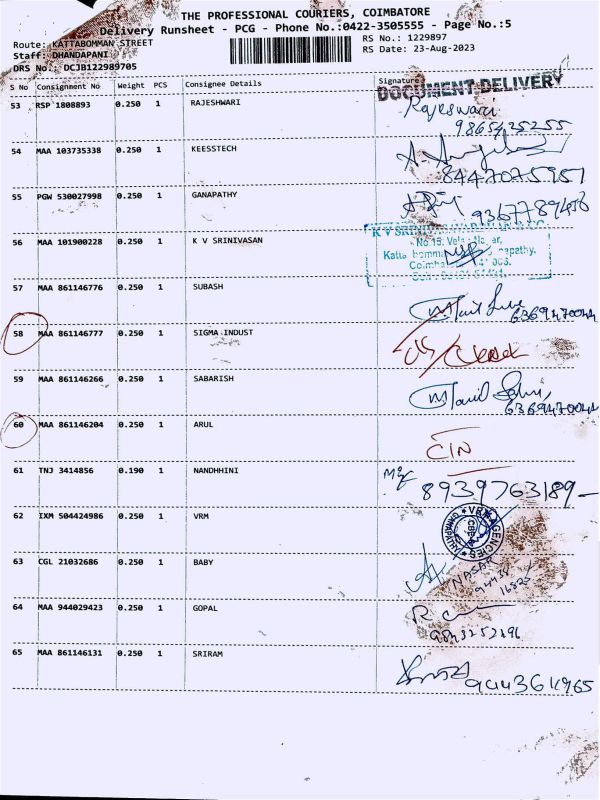 THE PROFESSIONAL COURIERS, COIMBATORE
Delivery Runsheet - PCG - Phone No.:0422-3505555 - Page No.:5
Route: KATTABOMMAN STREET
Staff: DHANDAPANI
DRS No.: DCJB122989705
RS No.: 1229897
RS Date: 23-Aug-2023
S No Consignment No Weight PCS Consignee Details Signature
DOCUMENT DELIVERY
53 RSP 1808893 0.250 1 RAJESHWARI Rajeswari
9865425255
54 MAA 103735338 0.250 1 KEESSTECH
8447075951
55 PGW 530027998 0.250 1 GANAPATHY 9367789456
56 MAA 101900228 0.250 1 K V SRINIVASAN
57 MAA 861146776 0.250 1 SUBASH
6369470044
58 MAA 861146777 0.250 1 SIGMA INDUST
59 MAA 861146266 0.250 1 SABARISH
6369470044
60 MAA 861146204 0.250 1 ARUL
61 TNJ 3414856 0.190 1 NANDHHINI 8939763189
62 IXM 504424986 0.250 1 VRM
63 CGL 21032686 0.250 1 BABY
64 MAA 944029423 0.250 1 GOPAL
65 MAA 861146131 0.250 1 SRIRAM